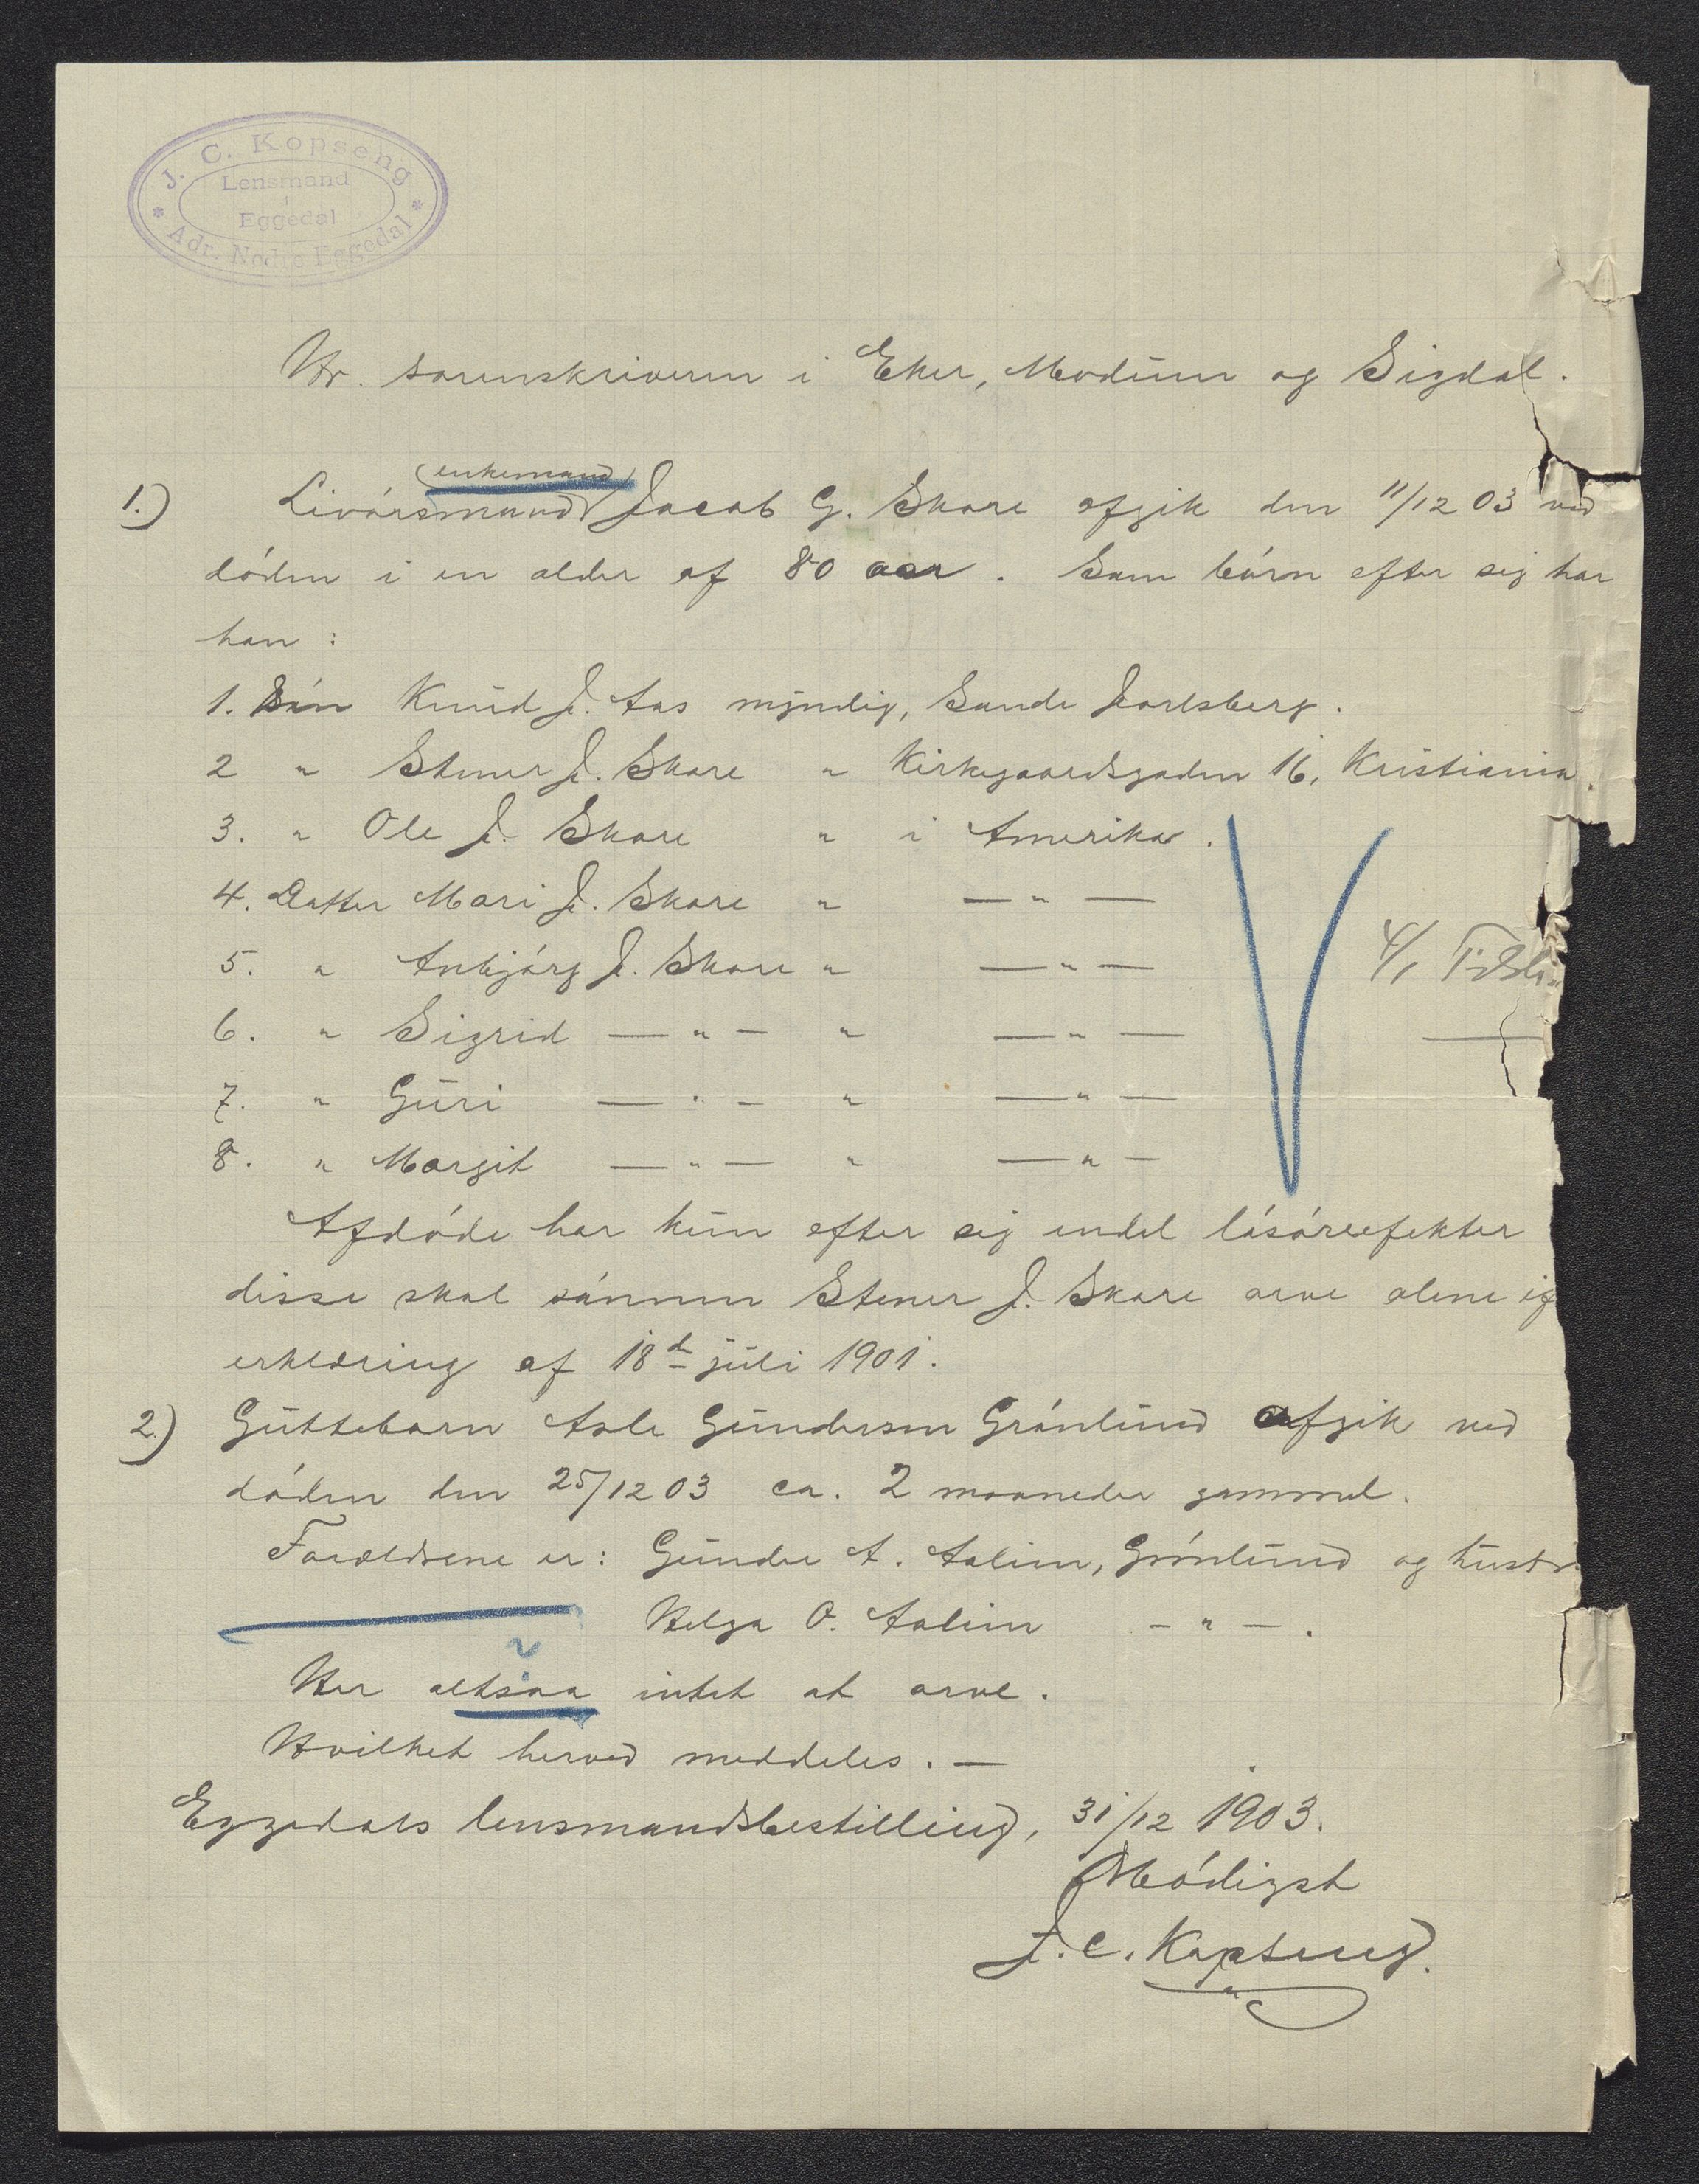 J. C. Kopseng
Lensmand
i
Eggedal
* Adr. Nedre Eggedal *
Hr. sorenskriveren i Eker, Modum og Sigdal.
(enkemand)
1.) Livórsmand Jacob G. Skare afgik den 11/12 03 ved
dóden i en alder af 80 aar. Som bórn efter sig har
han :
1. Són Knud J. Aas myndig, Sande Jarlsberg.
2 " Stener J. Skare " Kirkegaardsgaden 16, Kristiania.
3. " Ole J. Skare " i Amerika.
4. Datter Mari J. Skare " — " —
5. " Anbjórg J. Skare " — " —
6. " Sigrid — " — " — " —
7. " Guri — " — " — " —
8. " Margit — " — " — " —
4/1
Afdóde har kun efter sig endel lósóreefekter
disse skal sónnen Stener J. Skare arve alene
erklæring af 18d juli 1901.
2.) Guttebarn Asle Gundersen Grónlund afgik ved
dóden den 25/12 03 ca. 2 maaneder gammel.
Forældrene er: Gunder A. Aalien, Grónlund og hustr
Helga O. Aalien — " — .
Her altsaa intet at arve.
Hvilket herved meddeles. —
Eggedals lensmandsbestilling, 31/12 1903.
Ærbódigst
J. C. Kopseng.